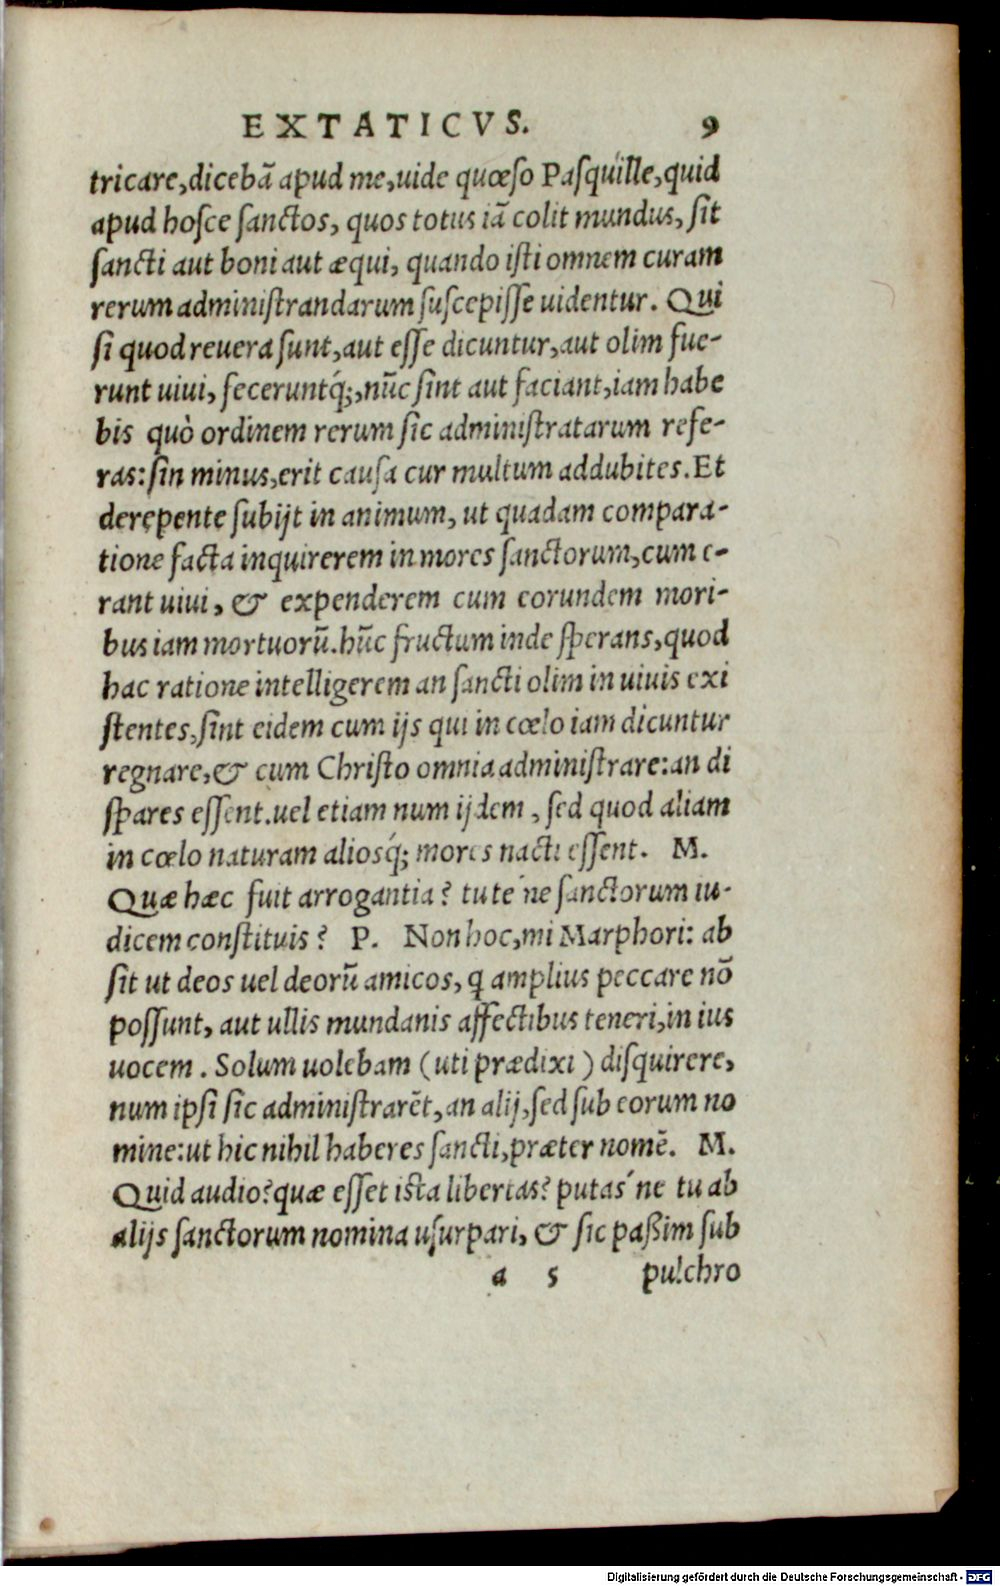 EXTATICVS. 9
tricare,dicebã apud me,uide quœſo Paſquille,quid
apud hoſce ſanctos, quos totus iã colit mundus, ſit
ſancti aut boni aut æqui, quando iſti omnem curam
rerum adminiſtrandarum ſuſcepiſſe uidentur. Qui
ſi quod reuera ſunt,aut eſſe dicuntur,aut olim fue-
runt uiui, feceruntq́;,nũc ſint aut faciant,iam habe
bis quò ordinem rerum ſic adminiſtratarum refe-
ras:ſin minus,erit cauſa cur multum addubites. Et
derępente ſubijt in animum, ut quadam compara-
tione facta inquirerem in mores ſanctorum,cum e-
rant uiui, & expenderem cum eorundem mori-
bus iam mortuorũ.hũc fructum inde ſperans,quod
hac ratione intelligerem an ſancti olim in uiuis exi
ſtentes,ſint eidem cum ijs qui in cœlo iam dicuntur
regnare,& cum Chriſto omnia adminiſtrare:an di
ſpares eſſent.uel etiam num ijdem , ſed quod aliam
in cœlo naturam alioſq́; mores nacti eſſent. M.
Quæ hæc fuit arrogantia? tute´ne ſanctorum iu-
dicem conſtituis? P. Non hoc,mi Marphori: ab
ſit ut deos uel deorũ amicos, q amplius peccare nõ
poſſunt, aut ullis mundanis affectibus teneri,in ius
uocem . Solum uolebam (uti prædixi) diſquirere,
num ipſi ſic adminiſtrarẽt, an alij,ſed ſub eorum no
mine:ut hic nihil haberes ſancti,præter nomẽ. M.
Quid audio?quæ eſſet iſta libertas? putas´ne tu ab
alijs ſanctorum nomina uſurpari, & ſic paßim ſub
a 5 pulchro
Digitalisierung gefördert durch die Deutsche Forschungsgemeinschaft - DFG